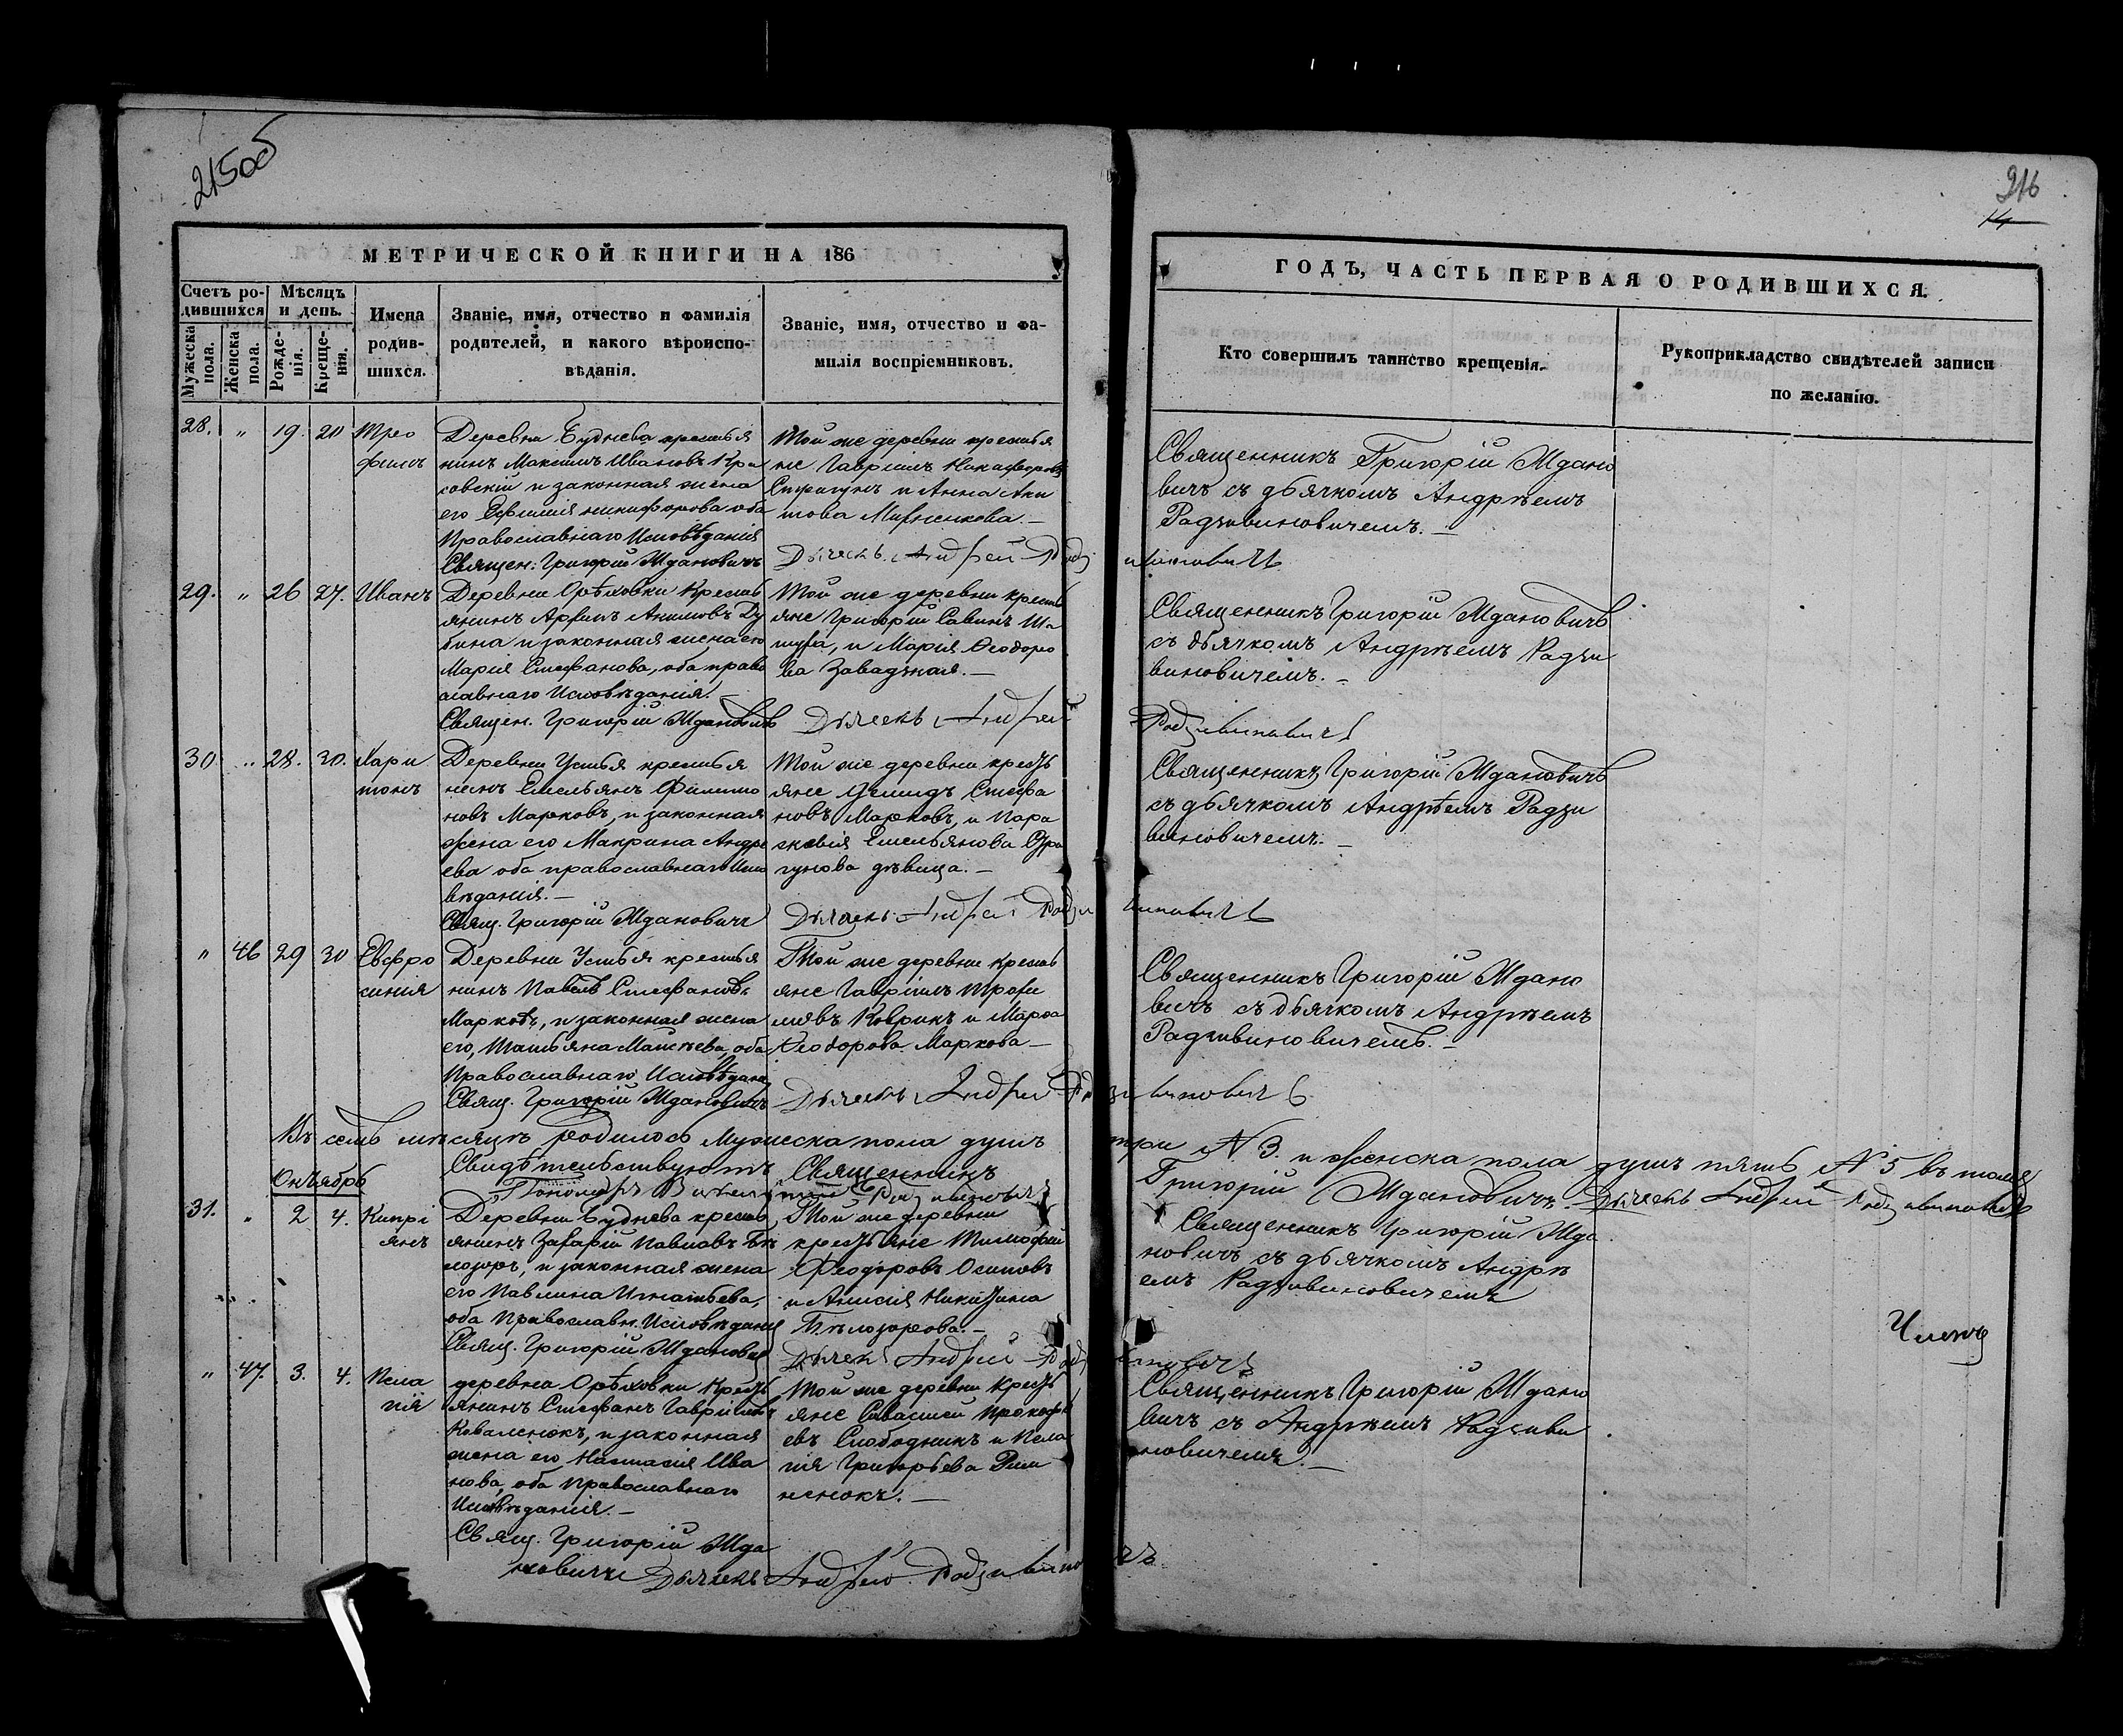 215об
216
14
МЕТРИЧЕСКОЙ КНИГИ НА 186
ГОДЪ, ЧАСТЬ ПЕРВАЯ О РОДИВШИХСЯ.
Счетъ ро-
дившихся
Мужеска пола.
Женска пола.
Мѣсяцъ
и день.
Рожде-
нія.
Креще-
нія.
Имена
родив-
шихся.
Званіе, имя, отчество и фамилія
родителей, и какого вѣроиспо-
вѣданія.
Званіе, имя, отчество и фа-
милія воспріемниковъ.
Кто совершилъ таинство крещенія.
Рукоприкладство свидѣтелей записи
по желанію.
28. " 19. 20 Тро
фимъ
Деревни Буднева крестья
нинъ Максимъ Ивановъ
и законная жена
его Евфимія Никифорова оба
Православнаго Исповѣданія
Священ. Григорій Ждановичъ
Той же деревни крестья
не Гавріилъ Никифоровъ
и Анна
Дьячекъ Андрей Радзивиновичъ
Священникъ Григорій Ждано
вичъ съ дьячкомъ Андреемъ
Радзивиновичемъ. —
29. " 26 27. Иванъ
Деревни Орѣховки Кресть
янинъ Архипъ Ду
бина и законная жена его
Марія Стефанова, оба право
славнаго Исповѣданія. —
Священ. Григорій Ждановичъ
Той же деревни кресть
яне Григорій Савинъ Ша
пура, и Марія Ѳеодоро
ва Завадзкая. —
Дьячекъ Андрей
Радзивиновичъ
Священникъ Григорій Ждановичъ
съ дьячкомъ Андреемъ Радзи
виновичемъ. —
30 " 28. 30. Хари
тонъ
Деревни Устья крестья
нинъ Емельянъ Филипо
новъ Марковъ, и законная
жена его Макрина Андре
ева оба православнаго Испо
вѣданія. —
Свящ. Григорій Ждановичъ
Той же деревни кресть
яне Стефа
новъ Марковъ, и Пара
скевія Емельянова
гунова дѣвица. —
Дьячекъ Андрей Радзивиновичъ
Священникъ Григорій Ждановичъ
съ дьячкомъ Андреемъ Радзи
виновичемъ. —
" 46 29 30 Евфро
синія
Деревни Устья крестья
нинъ Павелъ Стефановъ
Марковъ, и законная жена
его, Татьяна Матѳеева, оба
Православнаго Исповѣданія
Свящ. Григорій Ждановичъ
Той же деревни кресть
яне Гавріилъ Трофи
мовъ Коврикъ и Марѳа
Ѳеодорова Маркова —
Дьячекъ Андрей Радзивиновичъ
Священникъ Григорій Ждано
вичъ съ дьячкомъ Андреемъ
Радзивиновичемъ. —
Въ семъ мѣсяцѣ родилось Мужеска пола душъ три N 3. и женска пола душъ пять N 5 въ томъ
Свидѣтельствуютъ Священникъ Григорій Ждановичъ. Дьячекъ Андрей Радзивиновичъ
Пономарь
Октябрь
31. " 2 4. Кипрі
янъ
Деревни Буднева кресть
янинъ Захарій Павловъ Бѣ
лозоръ, и законная жена
его Павлина Игнатьева,
оба Православн. Исповѣданія
Свящ. Григорій Ждановичъ
Той же деревни
крестьяне Тимофей
Ѳеодоровъ Осиповъ
и Анисія Никитина
Бѣлозорова. —
Дьячекъ Андрей Радзивиновичъ
Священникъ Григорій Жда
новичъ съ дьячкомъ Андре
емъ Радзивиновичемъ
" 47. 3. 4. Пела
гія
деревни Орѣховки Кресть
янинъ Стефанъ Гавриловъ
Коваленокъ, и законная
жена его Настасія Ива
нова, оба Православнаго
Исповѣданія. —
Свящ. Григорій Жда
новичъ Дьячекъ Андрей Радзивиновичъ
Той же деревни кресть
яне Савастей Прокофі
евъ Слободникъ и Пела
гія Григорьева
ненокъ. —
Священникъ Григорій Ждано
вичъ съ Андреемъ Радзиви
новичемъ. —